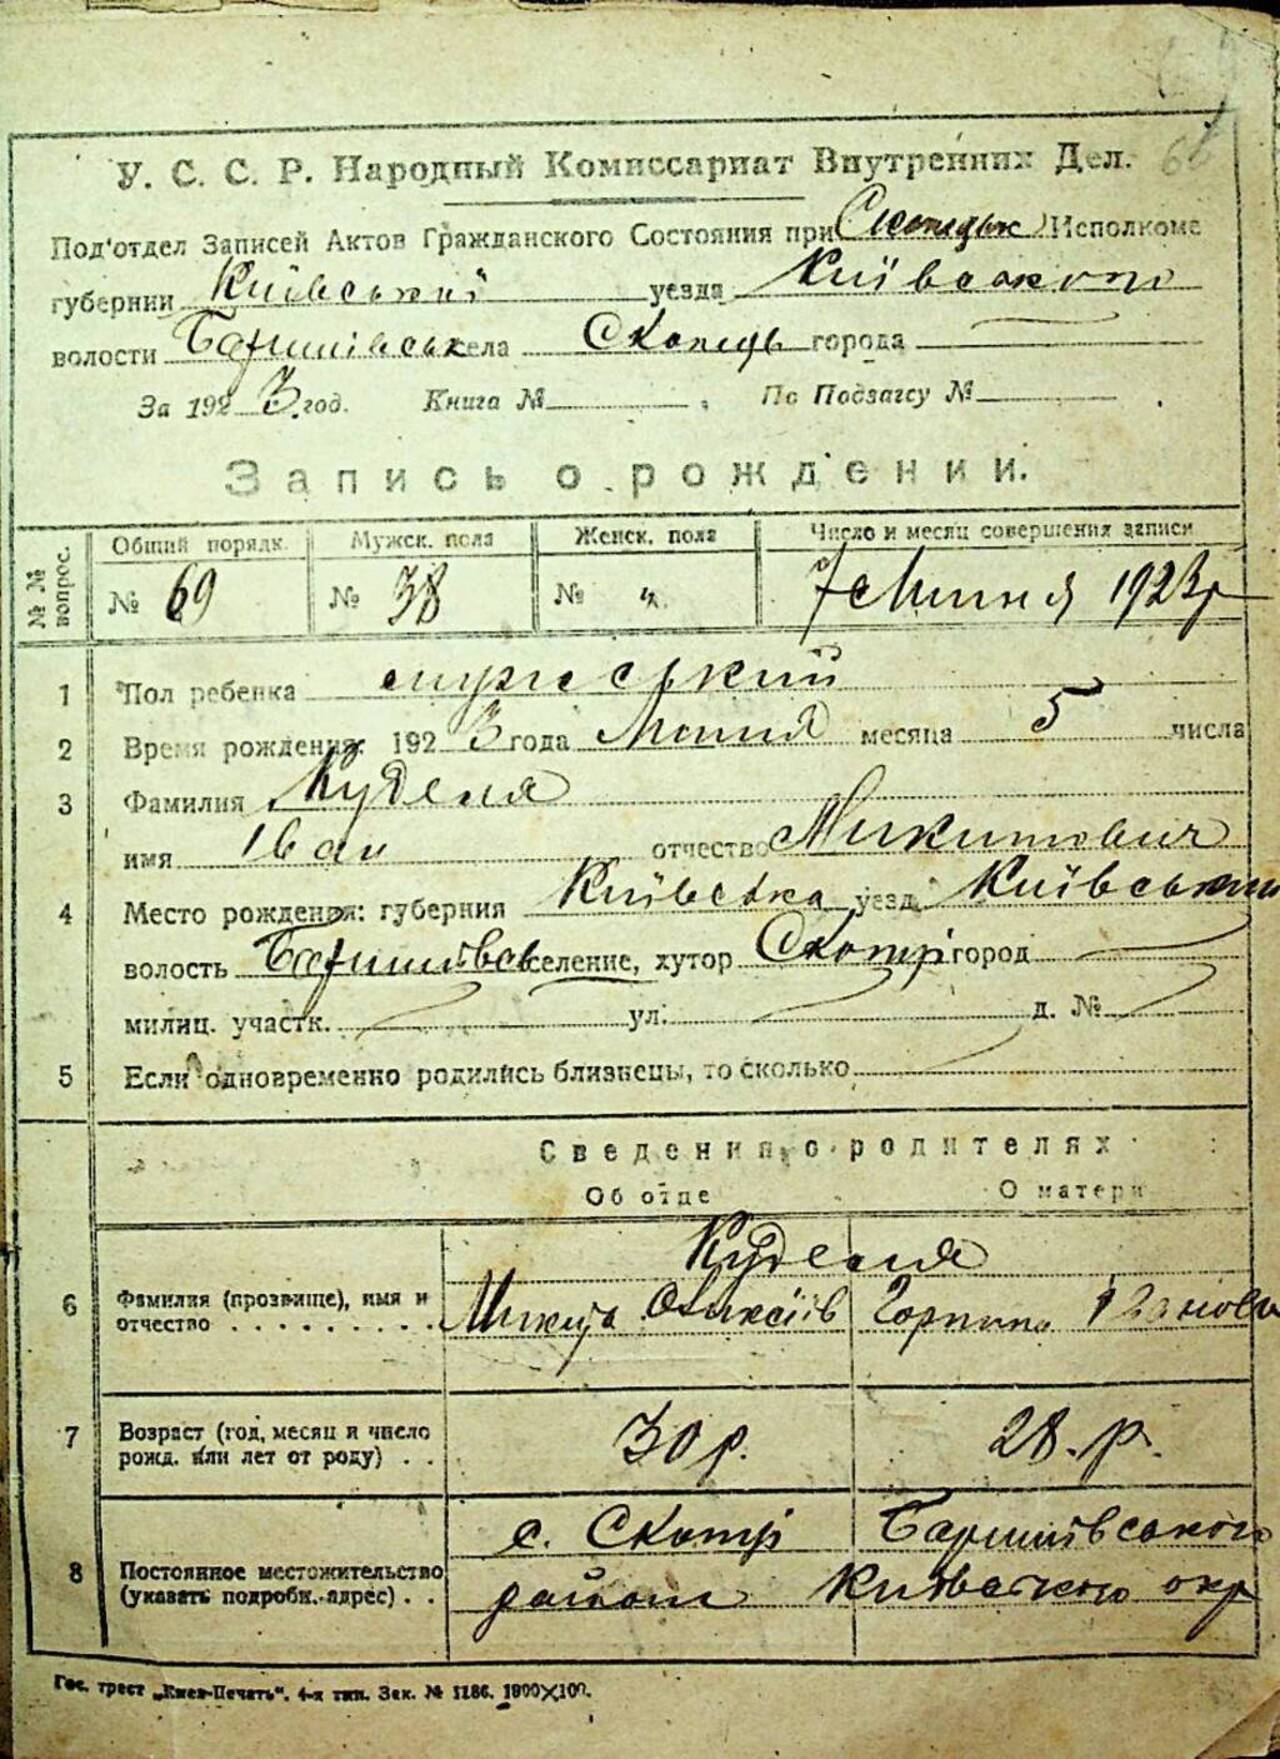 68
У. С. С. Р. Народный Комиссариат Внутренних Дел.
Под'отдел Записей Актов Гражданского Состояния при Скопецьк Исполкоме
губернии Київської уезда Київського
волости Баришівськ села Скопець города
За 1923 год. Книга № . По Подзагсу № .
Запись о рождении.
№ № вопрос. Общий порядк. Мужск. пола Женск. пола Число и месяц совершения записи
№ 69 № 38 № " 7 1923 р
1 Пол ребенка мужеський
2 Время рождения: 1923 года месяца 5 числа
3 Фамилия Куделя
имя Іван отчество Микитович
4 Место рождения: губерния Київська уезд Київський
волость Баришівсь селение, хутор Скопці город
милиц. участк. ул. д. №
5 Если одновременно родились близнецы, то сколько
Сведения о родителях
Об отце О матери
Куделя
6 Фамилия (прозвище), имя и отчество Микита Олексіїв Горпина Іванова
7 Возраст (год, месяц и число рожд. или лет от роду) 30 р. 28. р.
8 Постоянное местожительство (указать подробн. адрес) с. Скопці Баришівського
району Київського окр
Гос. трест „Киев-Печать". 4-я тип. Зак. № 1186. 1900×100.